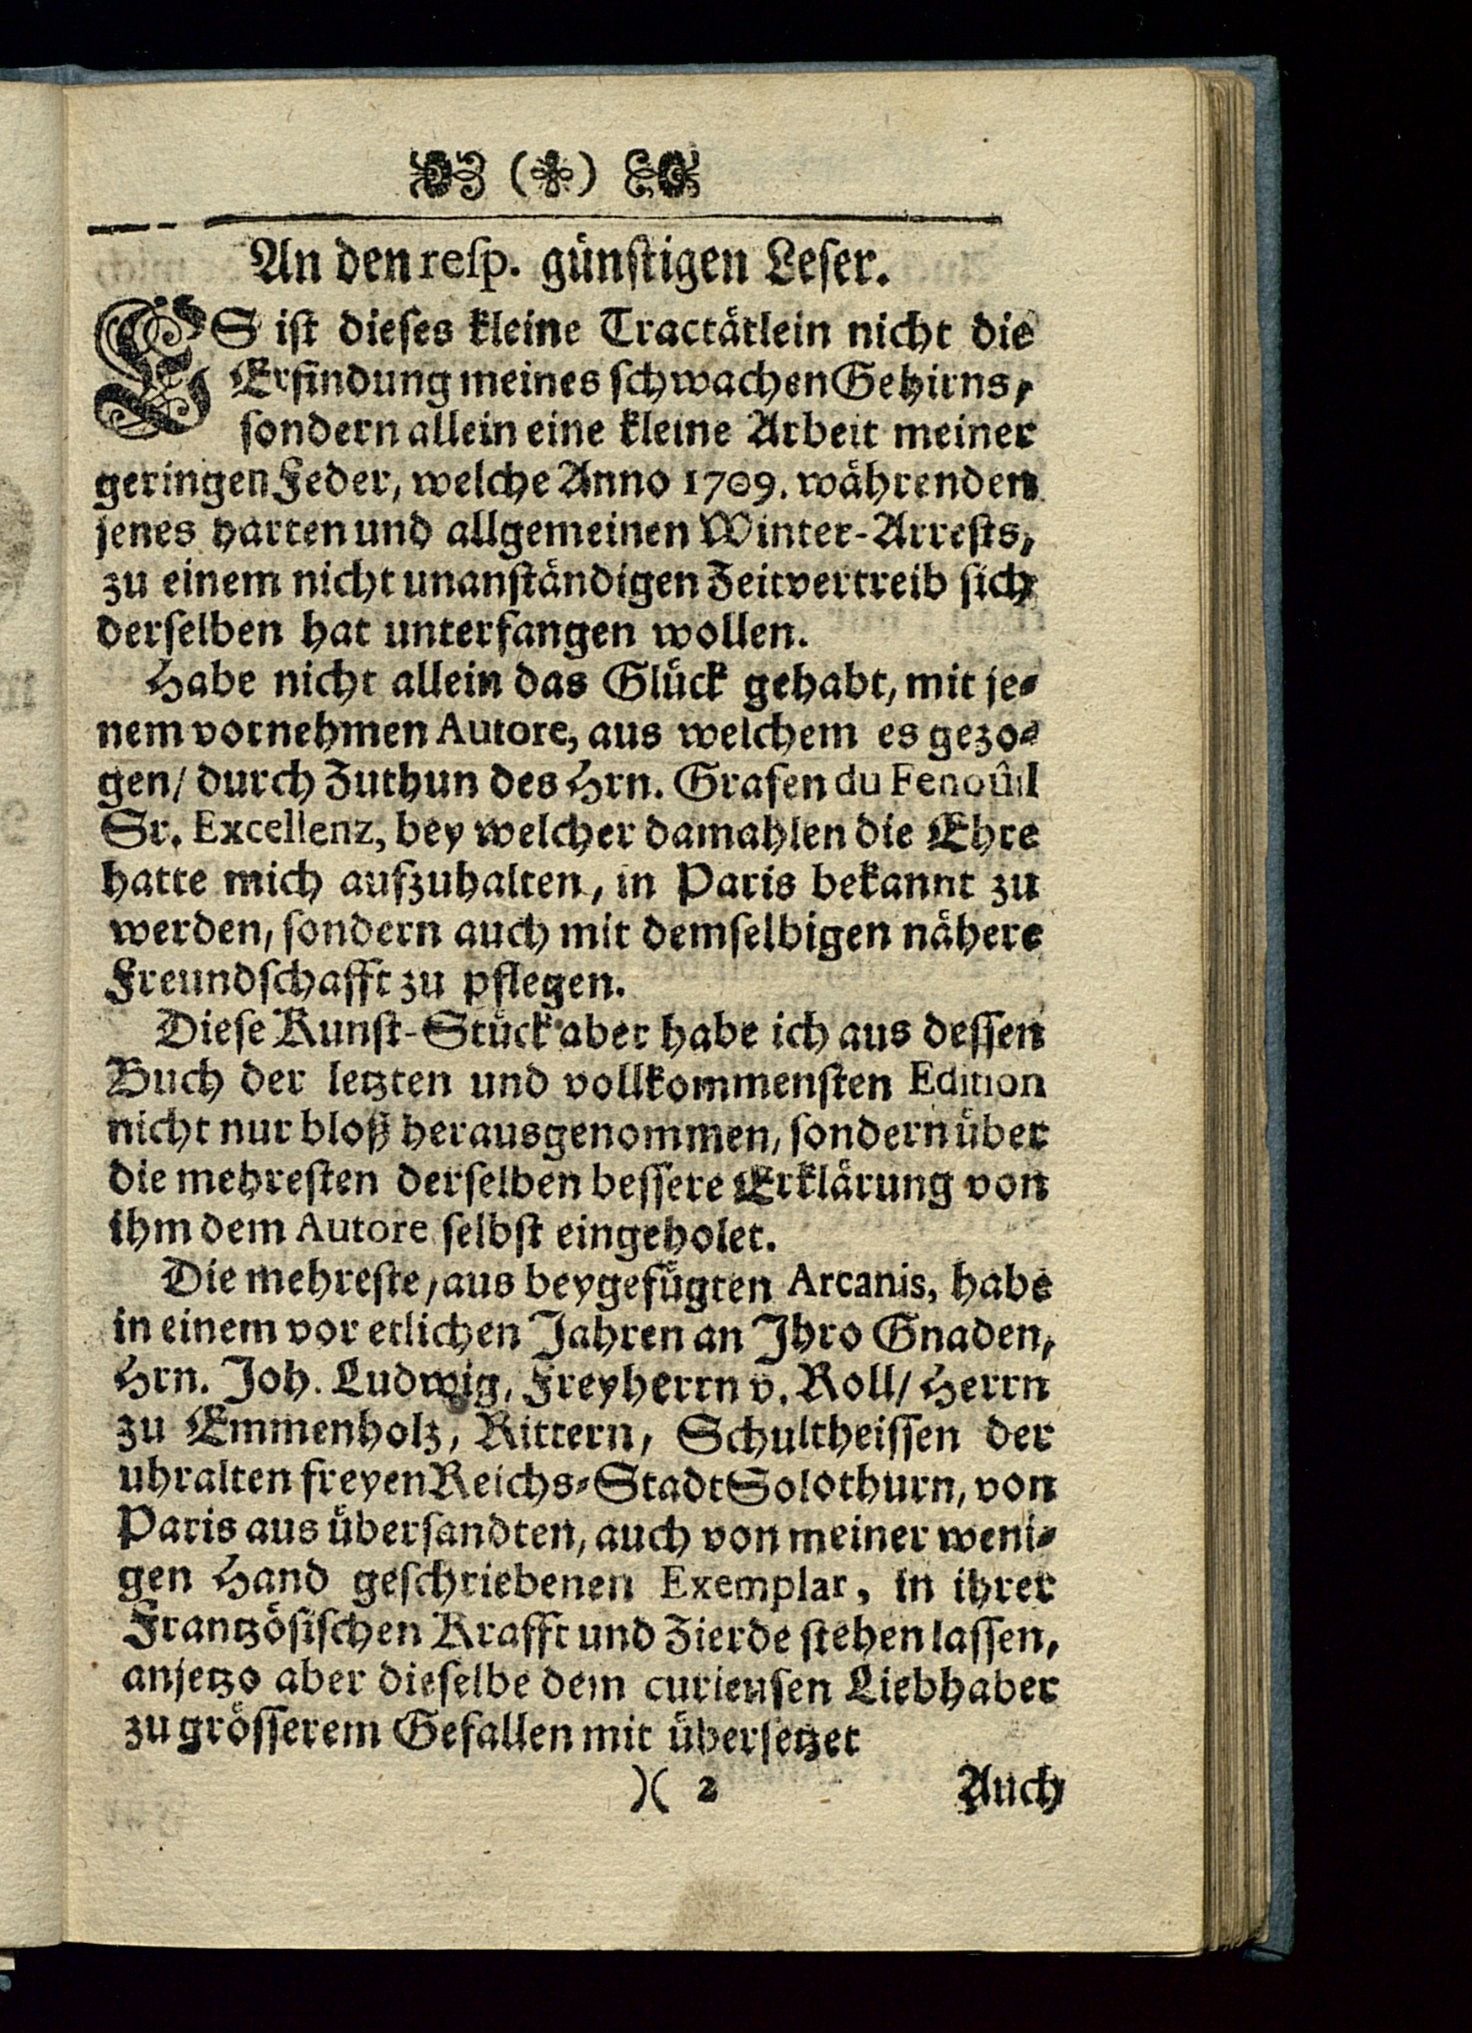 (*)
An den resp. günstigen Leser.
ES ist dieses kleine Tractätlein nicht die
Erfindung meines schwachen Gehirns,
sondern allein eine kleine Arbeit meiner
geringen Feder, welche Anno 1709. währenden
jenes harten und allgemeinen Winter-Arrests,
zu einem nicht unanständigen Zeitvertreib sich
derselben hat unterfangen wollen.
Habe nicht allein das Glück gehabt, mit je-
nem vornehmen Autore, aus welchem es gezo-
gen/ durch Zuthun des Hrn. Grafen du Fenoûil
Sr. Excellenz, bey welcher damahlen die Ehre
hatte mich aufzuhalten, in Paris bekannt zu
werden, sondern auch mit demselbigen nähere
Freundschafft zu pflegen.
Diese Kunst-Stück aber habe ich aus dessen
Buch der letzten und vollkommensten Edition
nicht nur bloß herausgenommen, sondern über
die mehresten derselben bessere Erklärung von
ihm dem Autore selbst eingeholet.
Die mehreste/ aus beygefügten Arcanis, habe
in einem vor etlichen Jahren an Ihro Gnaden,
Hrn. Joh. Ludwig, Freyherrn v. Roll/ Herrn
zu Emmenholz, Rittern, Schultheissen der
uhralten freyen Reichs-Stadt Solothurn, von
Paris aus übersandten, auch von meiner weni-
gen Hand geschriebenen Exemplar, in ihrer
Frantzösischen Krafft und Zierde stehen lassen,
anjetzo aber dieselbe dem curieusen Liebhaber
zu grösserem Gefallen mit übersetzet
)( 2 Auch